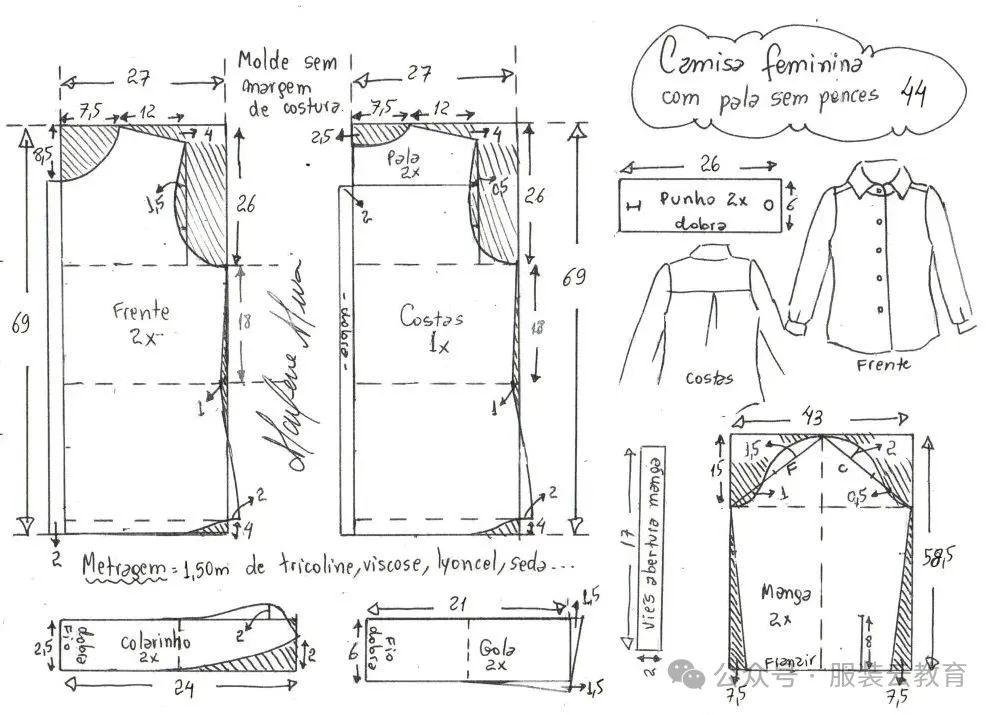 Camisa feminina
com pala sem pences 44
Molde sem
margem
de costura.
27
7,5
12
4
8,5
1,5
26
69
Frente
2x
18
1
2
4
2
27
7,5
12
4
2,5
Pala
2x
0,5
2
26
69
- dobra -
Costas
1x
18
1
2
4
26
Punho 2x
dobra
6
costas
Frente
Metragem = 1,50m de tricoline, viscose, lyoncel, seda...
2,5
dobra
Fio
Colarinho
2x
2
2
24
21
1,5
6
dobra
Fio
Gola
2x
1,5
17
viés abertura manga
2
43
15
1,5
F
C
2
1
0,5
58,5
Manga
2x
8
Franzir
7,5
7,5
公众号 · 服装云教育